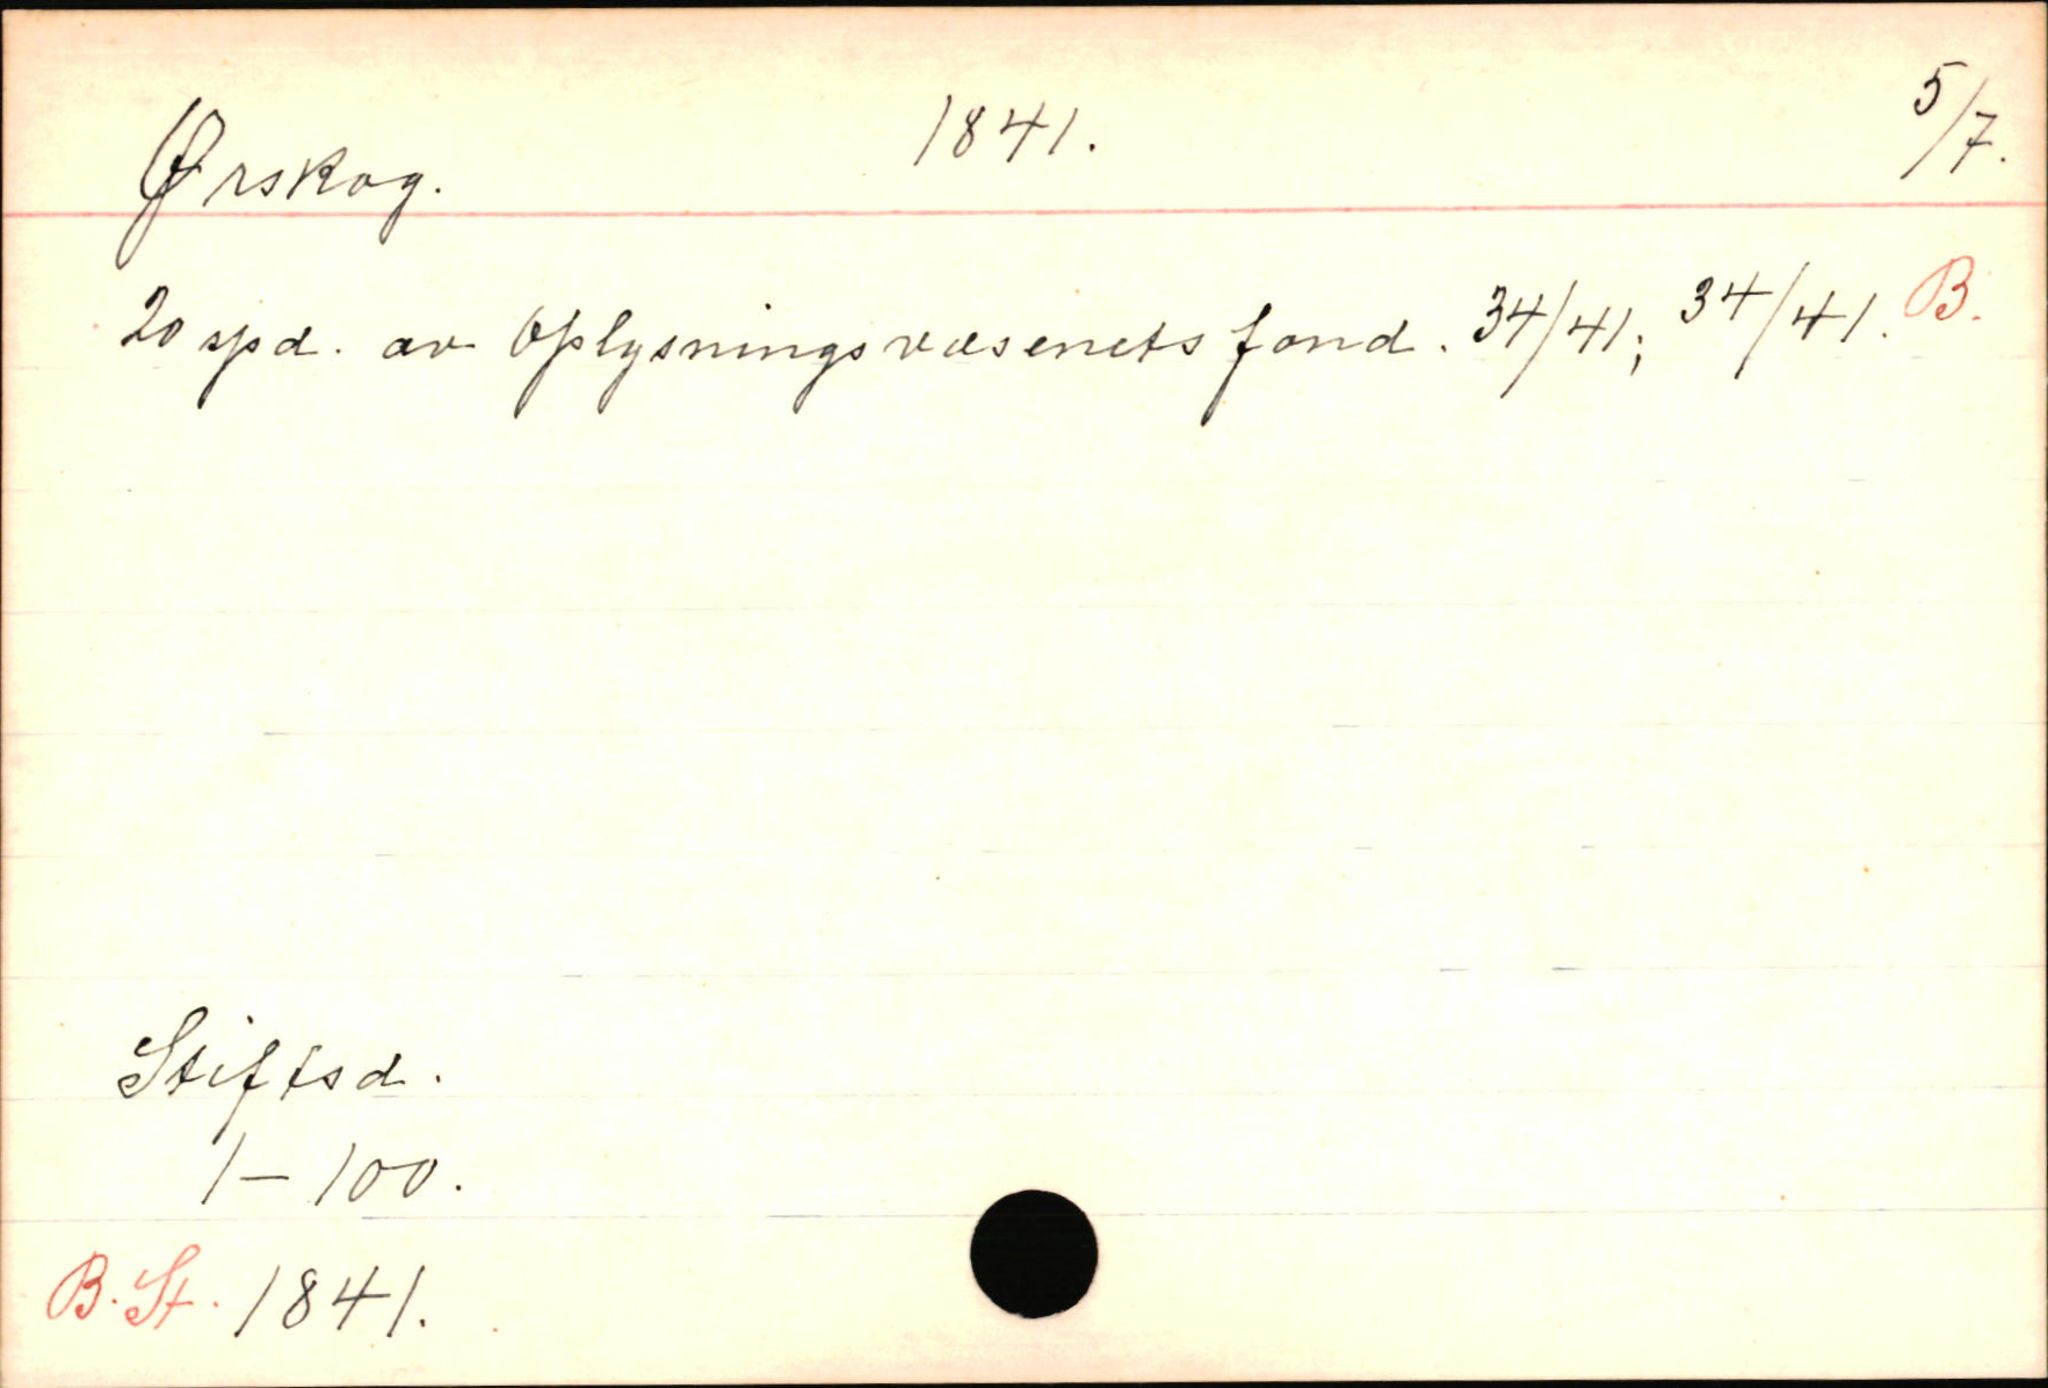 Ørskog. 1841. 5/7.
20 spd. av Oplysningsvæsenets fond. 34/41; 34/41. B.
Stiftsd.
1-100.
B. St. 1841.